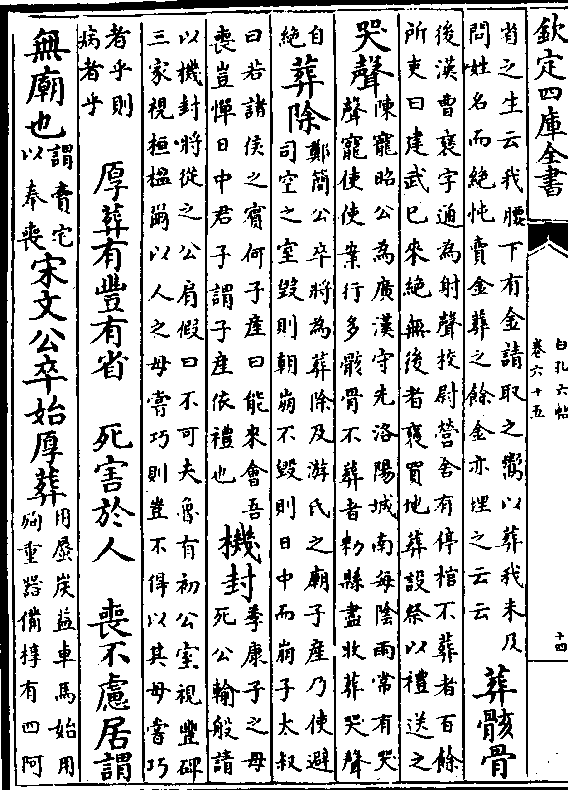 欽定四庫全書
白孔六帖
卷六十五
十四
省之生云我腰下有金請取之鬻以葬我未及
問姓名而絶忳賣金葬之餘金亦埋之云云
葬骸骨
後漢曹襃字通為射聲校尉營舍有停棺不葬者百餘
所吏曰建武已來絶無後者襃買地葬設祭以禮送之
哭聲
陳寵昭公為廣漢守先洛陽城南每陰雨常有哭
聲寵使使案行多骸骨不葬者勑縣盡收葬哭聲
自
絶
葬除
鄭簡公卒將為葬除及游氏之廟子產乃使避
司空之室毁則朝崩不毁則日中而崩子太叔
曰若諸侯之賓何子產曰能來會吾
喪豈憚日中君子謂子產依禮也
機封
季康子之母
死公輸般請
以機封將從之公肩假曰不可夫魯有初公室視豐碑
三家視桓楹爾以人之母嘗巧則豈不得以其母嘗巧
者乎則
病者乎
厚葬有豐有省 死害於人 喪不慮居謂
無廟也
謂賣宅
以奉喪
宋文公卒始厚葬
用蜃炭益車馬始用
殉重器備椁有四阿